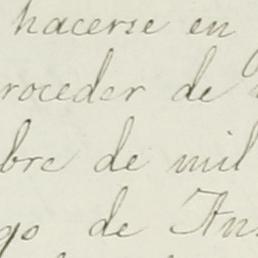 hacerse en
roceder de
bre de mil
go de An